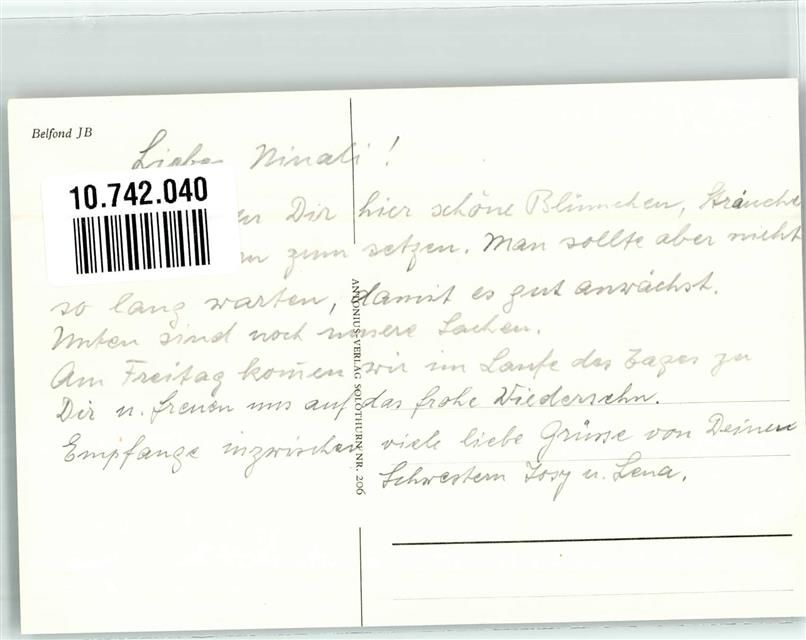 Belfond JB
Liebe Ninali !
10.742.040
Dir hier schöne Blümchen, Sträuche
zum setzen. Man sollte aber nicht
so lang warten, damit es gut anwächst.
Unten sind noch unsere Sachen.
Am Freitag kom̄en wir im Laufe des Tages zu
Dir u. freuen uns auf das frohe Wiedersehn.
Empfange inzwischen viele liebe Grüsse von Deinen
Schwestern Josy u. Lena.
ANTONIUS-VERLAG SOLOTHURN NR. 206